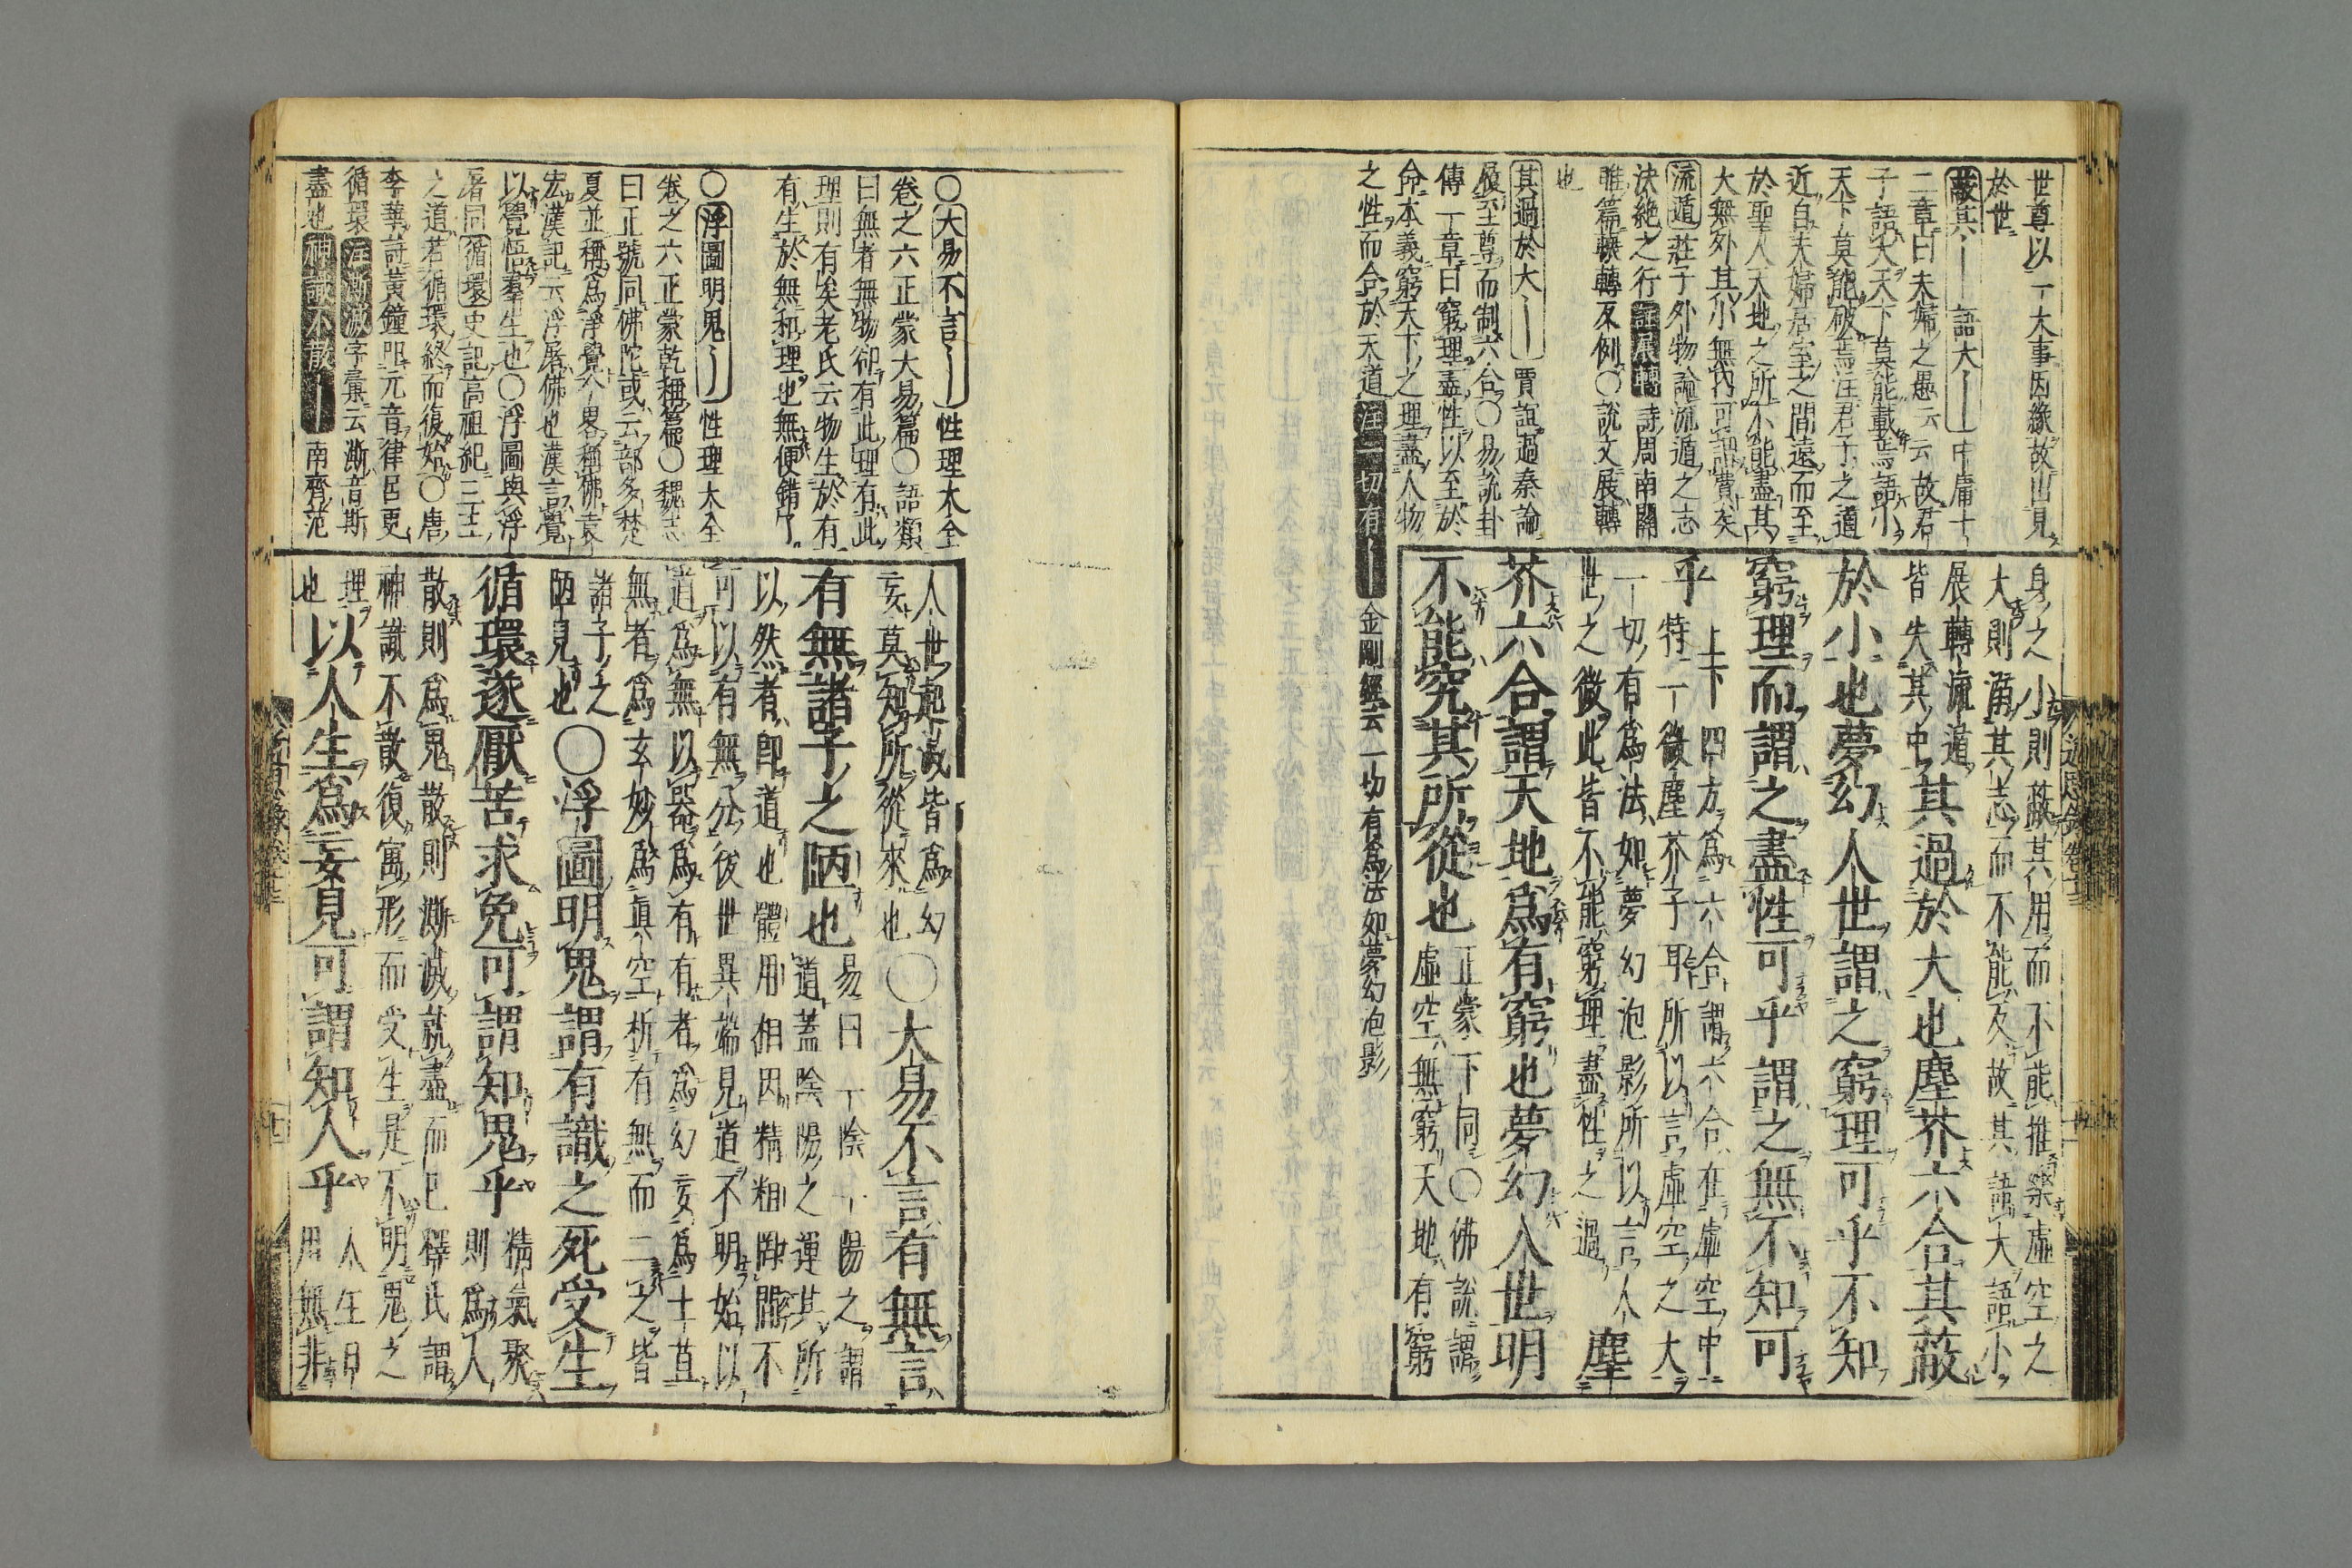 世尊以一大事因緣故出見
於世
蔽其｜語大｜中庸十
二章曰夫婦之愚云云故君
子語大天下莫能載焉語小
天下莫能破焉注君子之道
近自夫婦居室之間遠而至
於聖人天地之所不能盡其
大無外其小無内可謂費矣
流遁莊子外物論流遁之志
決絶之行註展轉詩周南關
雎篇輾轉反側○説文展轉
也
其過於大｜賈誼過秦論
履至尊而制六合○易説卦
傳一章曰窮理盡性以至於
命本義窮天下之理盡人物
之性而合於天道注一切有｜金剛經云一切有爲法如夢幻泡影
身之小則蔽其用而不能推察虛空之
大則溺其志而不能反故其語大語小
展轉流遁
皆失其中其過於大也塵芥六合其蔽
於小也夢幻人世謂之窮理可乎不知
窮理而謂之盡性可乎謂之無不知可
乎上下四方爲六合謂六合在虛空中
特一微塵芥子耳所以言虛空之大
一切有爲法如夢幻泡影所以言人
世之微此皆不能窮理盡性之過塵
芥六合謂天地爲有窮也夢幻人世明
不能究其所從也正蒙下同○佛説謂
虛空無窮天地有窮
近思錄卷十三
○大易不言｜性理大全
卷之六正蒙大易篇○語類
曰無者無物卻有此理有此
理則有矣老氏云物生於有
有生於無和理也無便錯了
○浮圖明鬼｜性理大全
卷之六正蒙乾稱篇○魏志
曰正號同佛陀或云部多楚
夏並稱爲淨覺今畧稱佛袁
宏漢記云浮屠佛也漢言覺
以覺悟羣生也○浮圖與浮
屠同循環史記高祖紀三王
之道若循環終而復始○唐
李華詩黃鐘叩元音律呂更
循環注澌滅字彙云澌音斯
盡也神識不散｜南齊范
人世起滅皆爲幻
妄莫知所從來也○大易不言有無言
有無諸子之陋也易曰一陰一陽之謂
道蓋陰陽之運其所
以然者即道也體用相因精粗罔間不
可以有無分後世異端見道不明始以
道爲無以器爲有有者爲幻妄爲土苴
無者爲玄妙爲眞空析有無而二之皆
諸子之
陋見也○浮圖明鬼謂有識之死受生
循環遂厭苦求免可謂知鬼乎精氣聚
則爲人
散則爲鬼散則澌滅就盡而已釋氏謂
神識不散復寓形而受生是不明鬼之
理
也以人生爲妄見可謂知人乎人生日
用無非